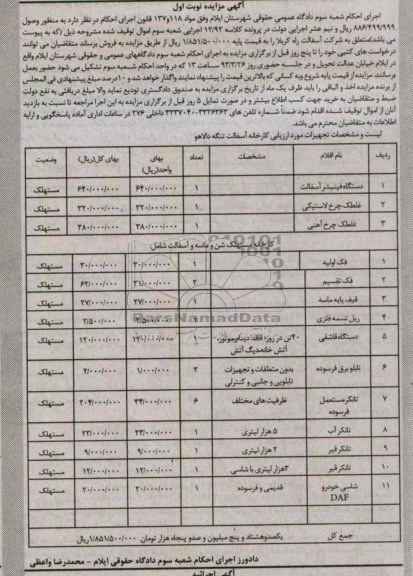 آگهی مزایده نوبت اول
اجرای احکام شعبه سوم دادگاه عمومی حقوقی شهرستان ایلام وفق مواد ۱۱۸و۱۳۷ قانون اجرای احکام در نظر دارد به منظور وصول
۸۸۶/۴۹۹/۹۹۹ ریال و نیم عشر اجرایی دولت در پرونده کلاسه ۱۲/۹۳ اجرایی شعبه سوم اموال توقیف شده مشروحه ذیل (که به پیوست
می باشد)متعلق به شرکت آسفالت راه کربلا را به قیمت پایه ۱/۸۵۱/۵۰۰/۰۰۰ ریال از طریق مزایده به فروش برساند متقاضیان می توانند
درخواست های کتبی خود را تا پنج روز قبل از برگزاری مزایده به اجرای احکام شعبه سوم دادگاههای عمومی و حقوقی شهرستان ایلام واقع
در ایلام خیابان عدالت تحویل و در جلسه حضوری روز ۹۳/۳/۲۴ ساعت ۱۳ که در واحد احکام شعبه سوم تشکیل می شود حضور بعمل
برسانند. مزایده از قیمت پایه شروع وبه کسانی که بالاترین قیمت را پیشنهاد نمایند واگذار خواهد شد و ۱۰درصد مبلغ پیشنهادی فی المجلس
از برنده مزایده اخذ و الباقی را باید ظرف یک ماه از تاریخ برگزاری مزایده به صندوق دادگستری تودیع نماید والا مبلغ دریافتی به نفع دولت
ضبط و متقاضیان به خرید جهت کسب اطلاع بیشتر و در صورت تمایل ۵ روز قبل از برگزاری مزایده به این اجرا مراجعه تا نسبت به بازدید
آنان از اموال توقیف شده اقدام شود ضمناً شماره تلفن های ۳۳۳۶۳۶۳-۳۳۳۷۰۴۰ داخلی ۲۷۶ در ساعات اداری آماده پاسخگویی و ارایه
اطلاعات به متقاضیان محترم می باشد.
لیست و مشخصات تجهیزات مورد ارزیابی کارخانه آسفالت تنگه دالاهو
ردیف نام اقلام مشخصات تعداد بهای واحد(ریال) بهای کل(ریال) وضعیت
۱ دستگاه فینیشر آسفالت ۱ ۶۴۰/۰۰۰/۰۰۰ ۶۴۰/۰۰۰/۰۰۰ مستهلک
۲ غلطک چرخ لاستیکی ۱ ۳۲۰/۰۰۰/۰۰۰ ۳۲۰/۰۰۰/۰۰۰ مستهلک
۳ غلطک چرخ آهنی ۱ ۳۸۰/۰۰۰/۰۰۰ ۳۸۰/۰۰۰/۰۰۰ مستهلک
کارخانه مستهلک شن و ماسه و آسفالت شامل:
۱ فک اولیه ۱ ۳۰/۰۰۰/۰۰۰ ۳۰/۰۰۰/۰۰۰ مستهلک
۲ فک تقسیم ۲ ۳۱/۰۰۰/۰۰۰ ۶۲/۰۰۰/۰۰۰ مستهلک
۳ قیف پایه ماسه ۱ ۲۷/۰۰۰/۰۰۰ ۲۷/۰۰۰/۰۰۰ مستهلک
۴ ریل تسمه فلزی ۲/۵۰۰/۰۰۰ مستهلک
۵ دستگاه قاشقی ۴۰تن در روز فاقد دینام،موتور، ۱ ۱۲۰/۰۰۰/۰۰۰ ۱۲۰/۰۰۰/۰۰۰ مستهلک
آتش خانه،دیگ آتش
۶ تابلو برق فرسوده بدون متعلقات و تجهیزات ۲ ۱/۰۰۰/۰۰۰ ۲/۰۰۰/۰۰۰ مستهلک
تابلویی و جانبی و کنترلی
۷ تانکر مستعمل فرسوده ظرفیت های مختلف ۶ ۳۴/۰۰۰/۰۰۰ ۲۰۴/۰۰۰/۰۰۰ مستهلک
۸ تانکر آب ۵ هزار لیتری ۱ ۲۳/۰۰۰/۰۰۰ ۲۳/۰۰۰/۰۰۰ مستهلک
۹ تانکر قیر ۲ هزار لیتری ۱ ۹/۰۰۰/۰۰۰ ۹/۰۰۰/۰۰۰ مستهلک
۱۰ تانکر قیر ۳هزار لیتری با شاسی ۱ ۱۲/۰۰۰/۰۰۰ ۱۲/۰۰۰/۰۰۰ مستهلک
۱۱ شاسی خودرو DAF قدیمی و فرسوده ۱ ۲۰/۰۰۰/۰۰۰ ۲۰/۰۰۰/۰۰۰ مستهلک
جمع کل یکصدوهشتاد و پنج میلیون و صدو پنجاه هزار تومان ۱/۸۵۱/۵۰۰/۰۰۰ریال
دادورز اجرای احکام شعبه سوم دادگاه حقوقی ایلام - محمدرضا واعظی
آگهی اجرائیه
ParsNamadData